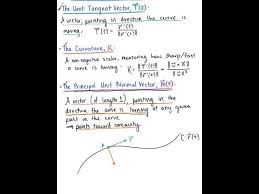 • The Unit Tangent Vector, T(t):
A vector, pointing in directio the curve is
moving, T(t) = r'(t) / ||r'(t)||
• The Curvature, K:
A non-negative scalar, measuring how sharp/fast
a curve is turning.
• The Principal Unit Normal Vector, N(t):
A vector (of length 1), pointing in the
direction the curve is turning at any given
point on the curve
→ points toward concavity
C: r(t)